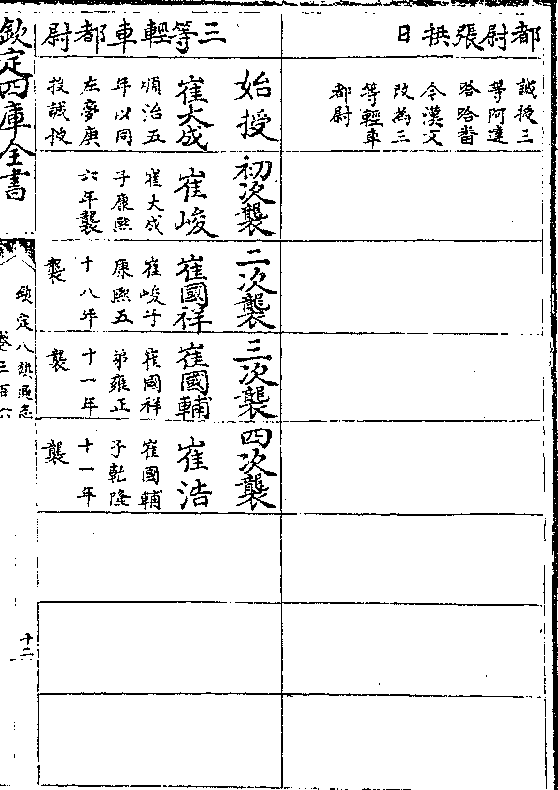 都尉張拱日
誠授三
等阿達
哈哈番
今漢文
改為三
等輕車
都尉
三等輕車都尉
始授
崔大成
順治五
年以同
左夢庚
投誠授
初次襲
崔峻
崔大成
子康熙
六年襲
二次襲
崔國祥
崔峻子
康熙五
十八年
襲
三次襲
崔國輔
崔國祥
弟雍正
十一年
襲
四次襲
崔浩
崔國輔
子乾隆
十一年
襲
欽定四庫全書
欽定八旗通志
卷三百六
十二